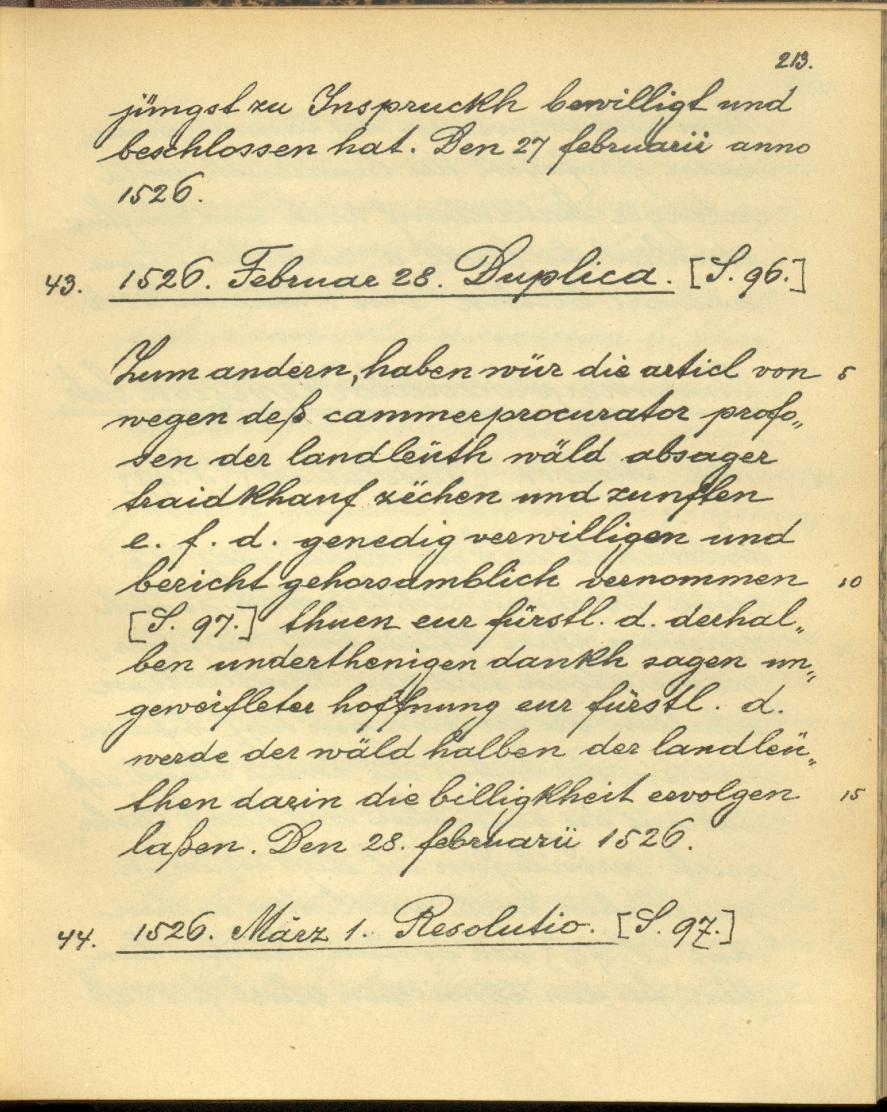 213.
jüngst zu Inspruckh bewilligt und
beschlossen hat. Den 27 februarii anno
1526.
43. 1526. Februar 28. Duplica. [S. 96.]
Zum andern, haben wür die articl von 5
wegen deß cammerprocurator profo„
sen der landleüth wäld absager
traidkhauf zëchen und zunften
e. f. d. genedig verwilligen und
bericht gehorsamblich vernommen 10
[S. 97.] thuen eur fürstl. d. derhal„
ben underthenigen dankh sagen un„
geweifleter hoffnung eur fürstl. d.
werde der wäld halben der landleü„
then darin die billigkheit ervolgen 15
laßen. Den 28. februarii 1526.
44. 1526. März 1. Resolutio. [S. 97.]